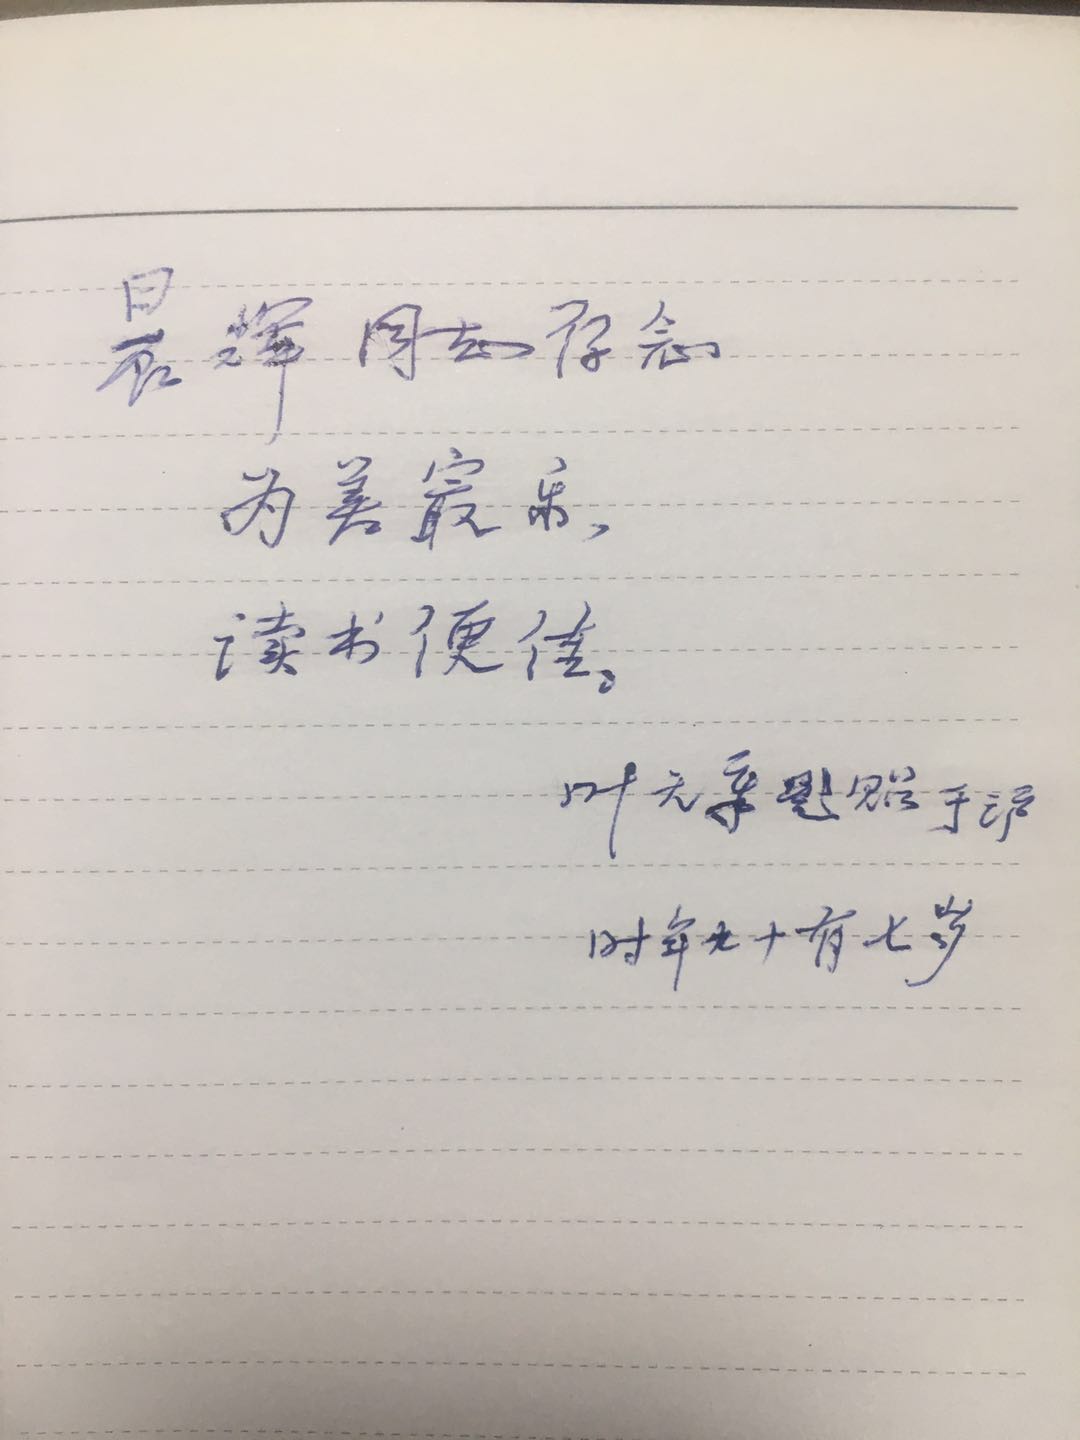 晨辉同志存念
为善最乐,
读书便佳。
叶元章题贻于沪
时年九十有七岁